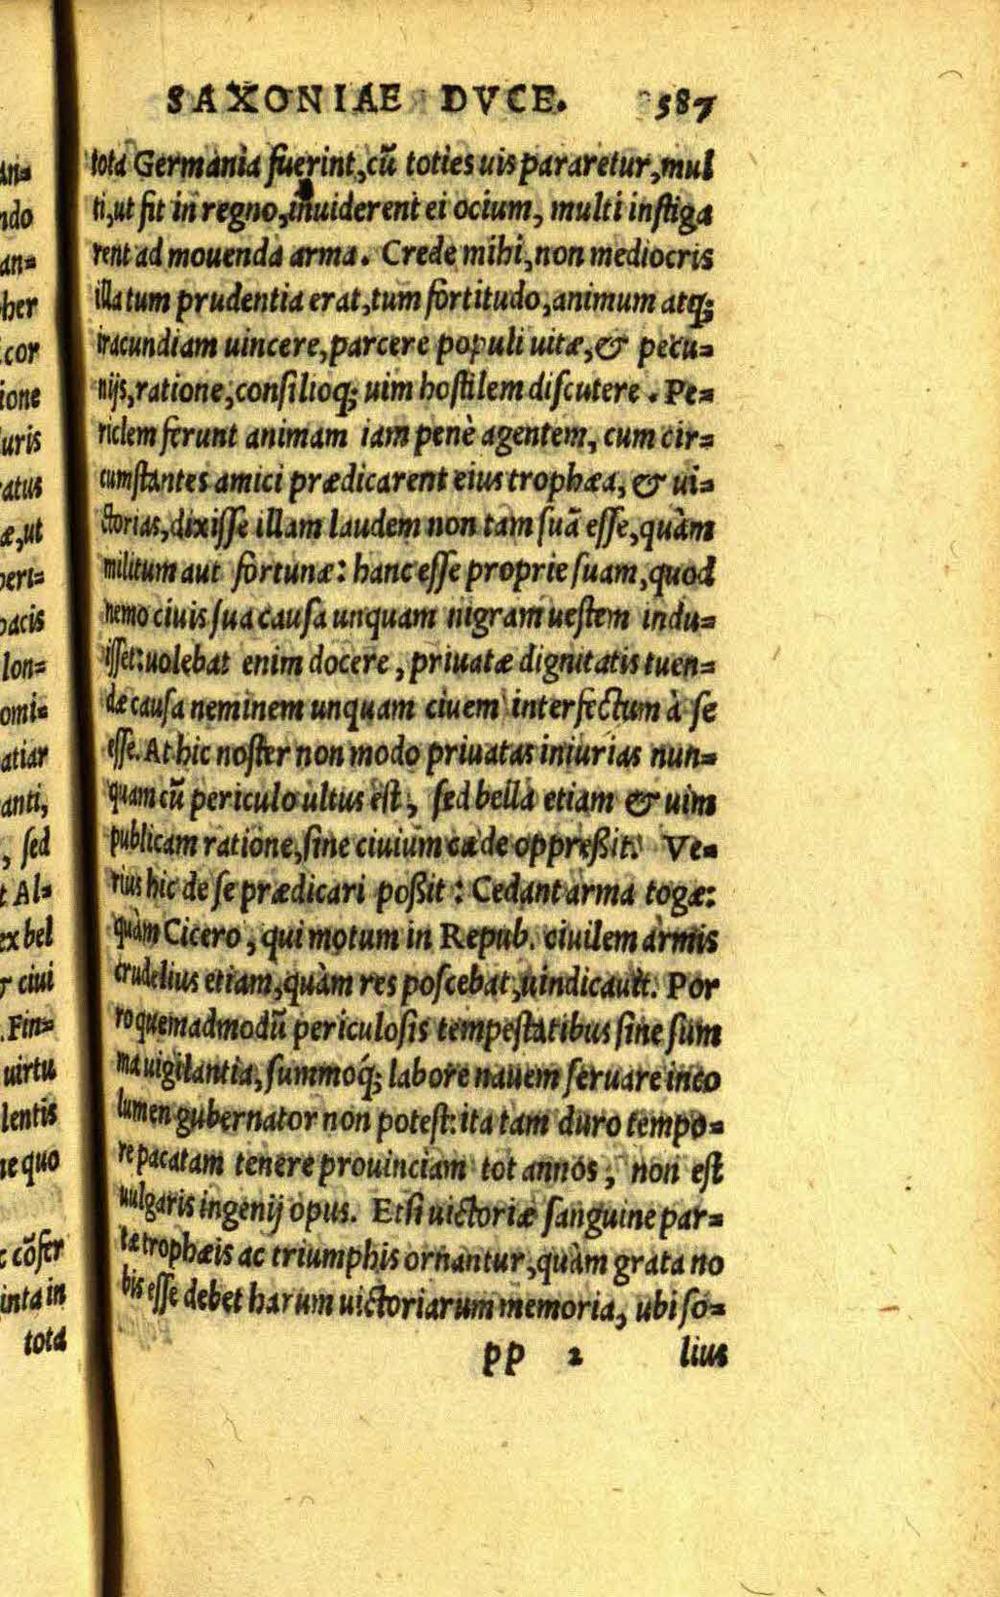 SAXONIAE DVCE. 587
tota Germania fuerint, cū toties uis pararetur, mul
ti, ut fit in regno, inuiderent ei ocium, multi instiga
rent ad mouenda arma. Crede mihi, non mediocris
illa tum prudentia erat, tum fortitudo, animum atq;
iracundiam uincere, parcere populi uitæ, & pecu=
nijs, ratione, consilioq; uim hostilem discutere. Pe=
riclem ferunt animam iam penè agentem, cum cir=
cumstantes amici prædicarent eius trophæa, & ui=
ctorias, dixisse illam laudem non tam suā esse, quàm
militum aut fortunæ: hanc esse proprie suam, quod
nemo ciuis sua causa unquam nigram uestem indu=
isset: uolebat enim docere, priuatæ dignitatis tuen=
dæ causa neminem unquam ciuem interfectum à se
esse. At hic noster non modo priuatas iniurias nun=
quam cū periculo ultus est, sed bella etiam & uim
publicam ratione, sine ciuium cæde oppreßit. Ve=
rius hic de se prædicari poßit: Cedant arma togæ:
quàm Cicero, qui motum in Repub. ciuilem armis
crudelius etiam, quàm res poscebat, uindicauit. Por
ro quemadmodū periculosis tempestatibus sine sum
ma uigilantia, summoq́; labore nauem seruare inco
lumen gubernator non potest: ita tam duro tempo=
re pacatam tenere prouinciam tot annos, non est
uulgaris ingenij opus. Etsi uictoriæ sanguine par=
tæ trophæis ac triumphis ornantur, quàm grata no
bis esse debet harum uictoriarum memoria, ubi so=
pp 2 lius
an=
ndo
an=
her
cor
ione
uris
atus
æ, ut
peri=
pacis
lon=
omi=
atiar
anti,
, sed
t Al=
ex bel
ciui
. Fin=
uirtu
lentis
ne quo
cōfer
inta in
tota